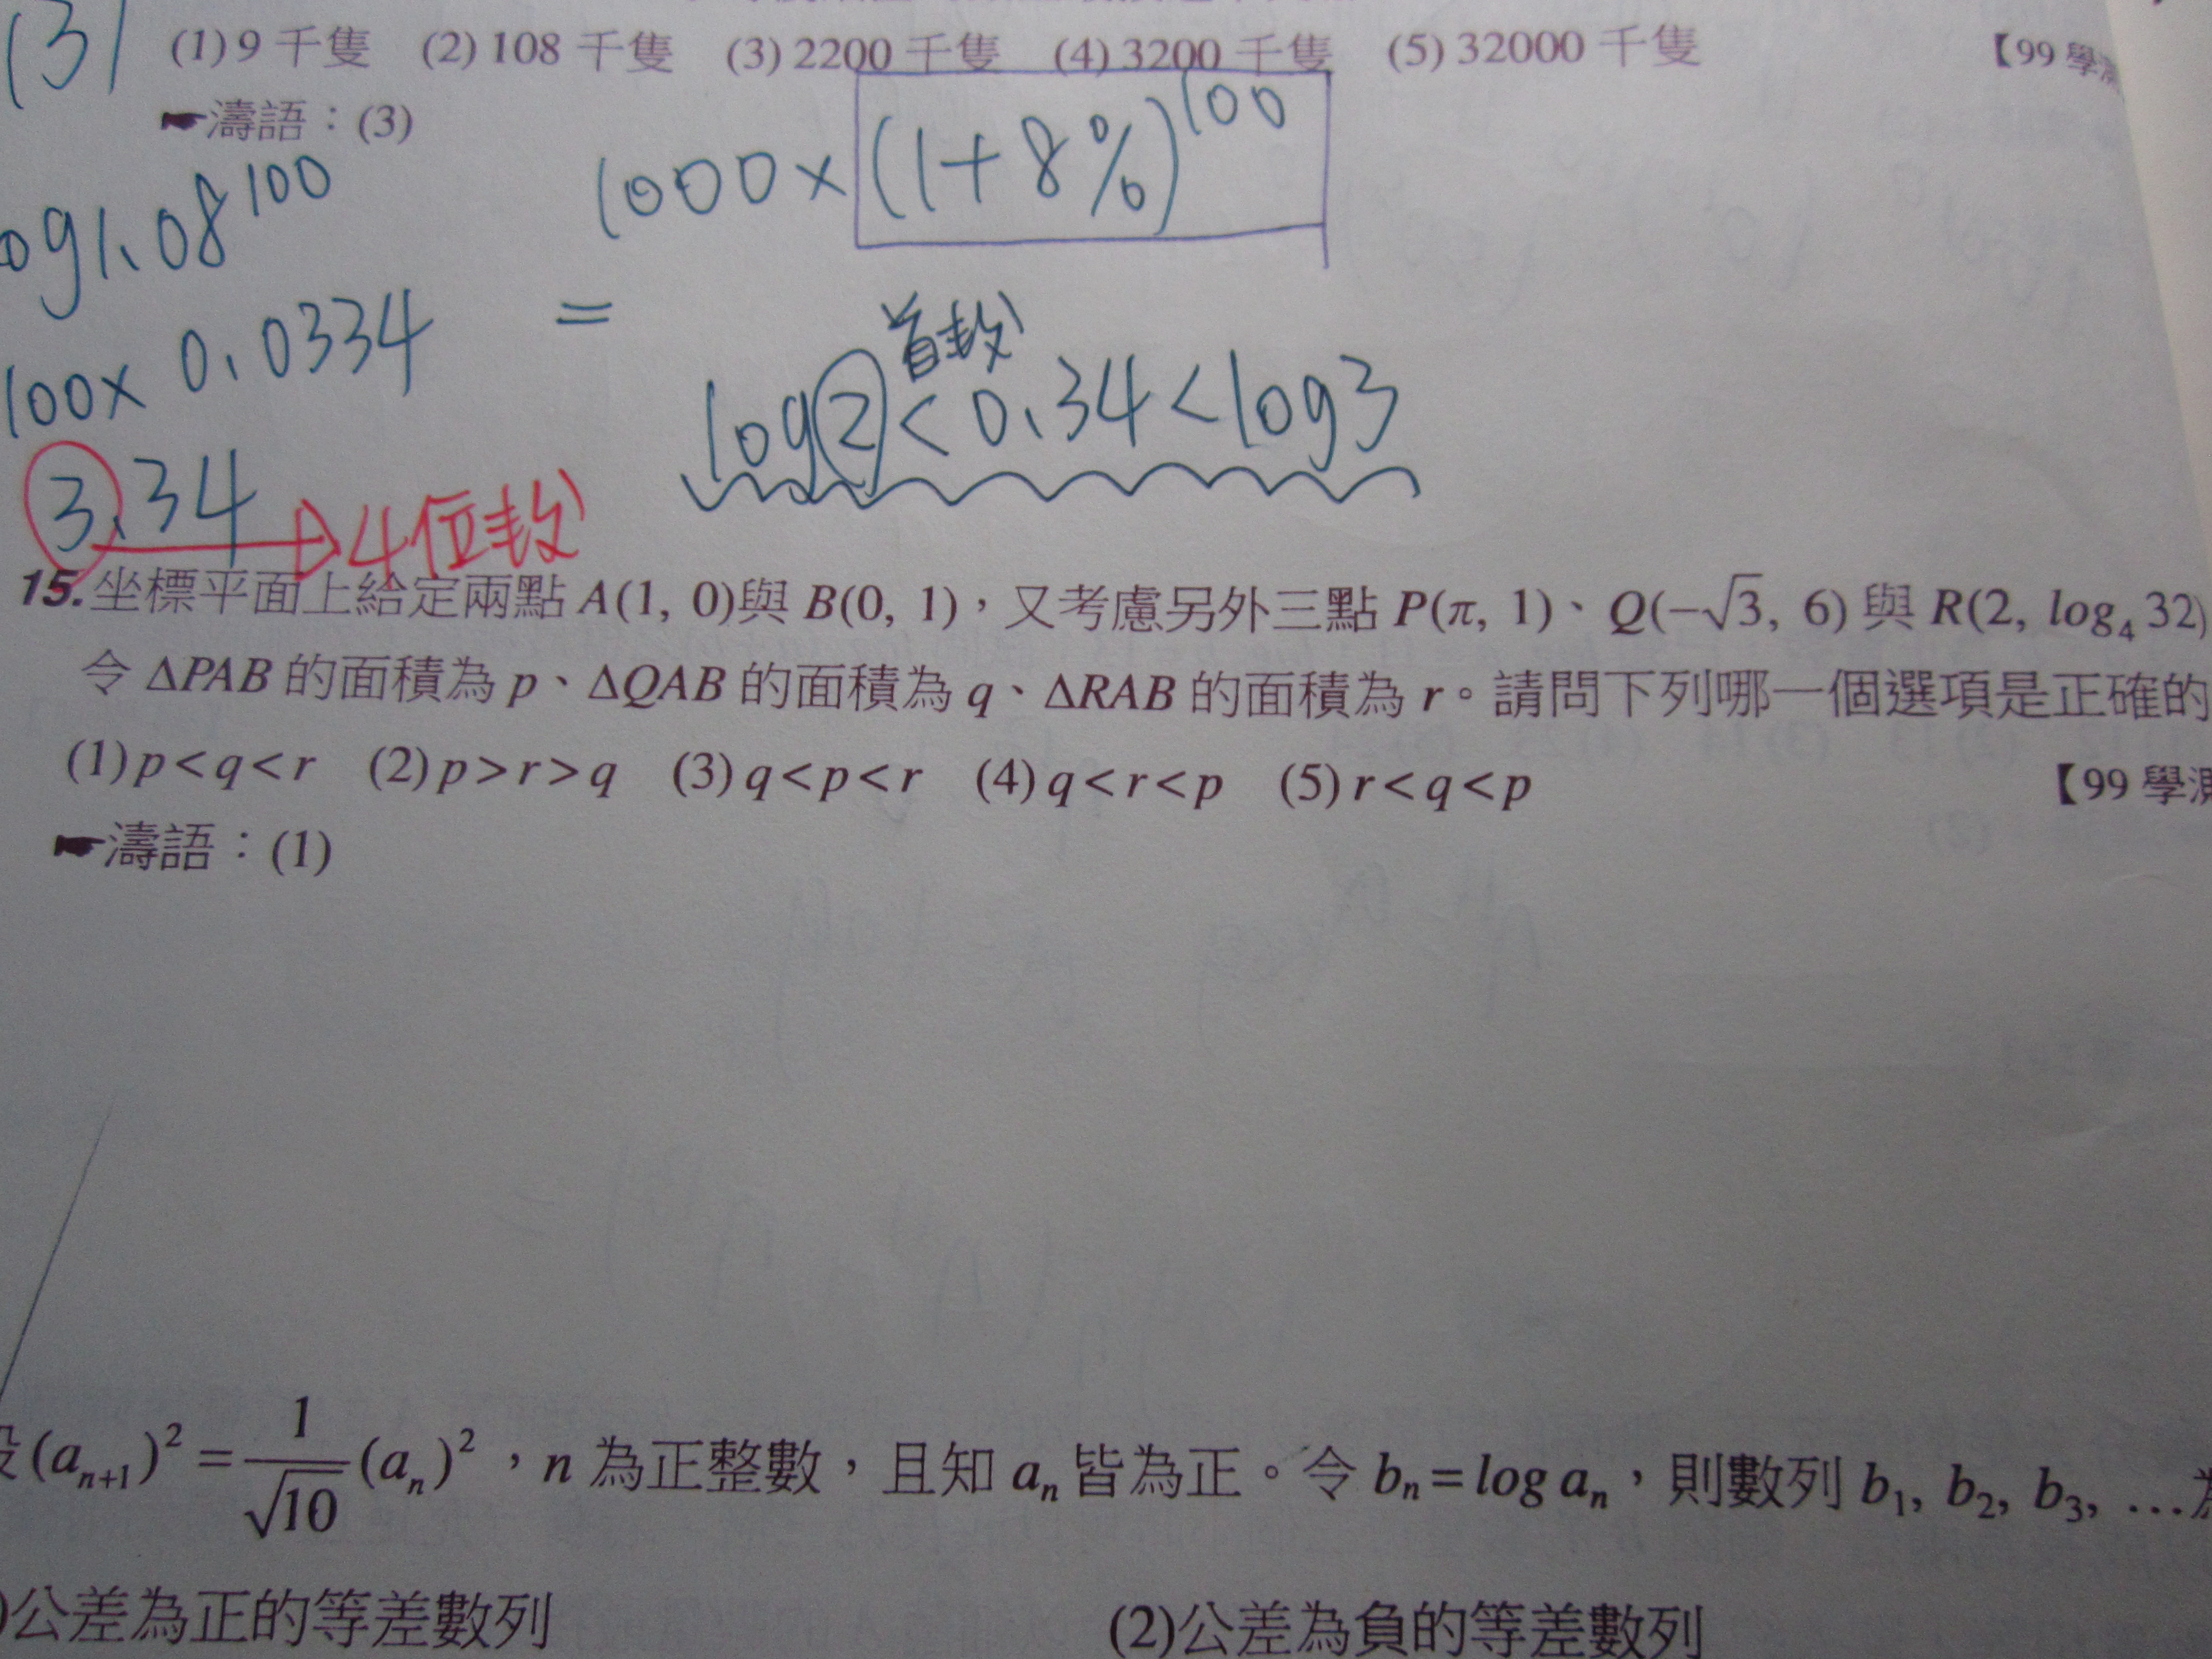 (3)
(1) 9 千隻 (2) 108 千隻 (3) 2200 千隻 (4) 3200 千隻 (5) 32000 千隻 【99 學測
☛濤語：(3)
1000×(1+8%)^100
log1.08^100
100×0.0334
=
首数
log2<0.34<log3
3.34→4位数
15.坐標平面上給定兩點 A(1, 0)與 B(0, 1)，又考慮另外三點 P(π, 1)、Q(−√3, 6) 與 R(2, log₄ 32)
令 ΔPAB 的面積為 p、ΔQAB 的面積為 q、ΔRAB 的面積為 r。請問下列哪一個選項是正確的
(1) p<q<r (2) p>r>q (3) q<p<r (4) q<r<p (5) r<q<p 【99 學測
☛濤語：(1)
設(aₙ₊₁)² = 1/√10 (aₙ)²，n 為正整數，且知 aₙ 皆為正。令 bₙ = log aₙ，則數列 b₁, b₂, b₃, …為
)公差為正的等差數列 (2)公差為負的等差數列